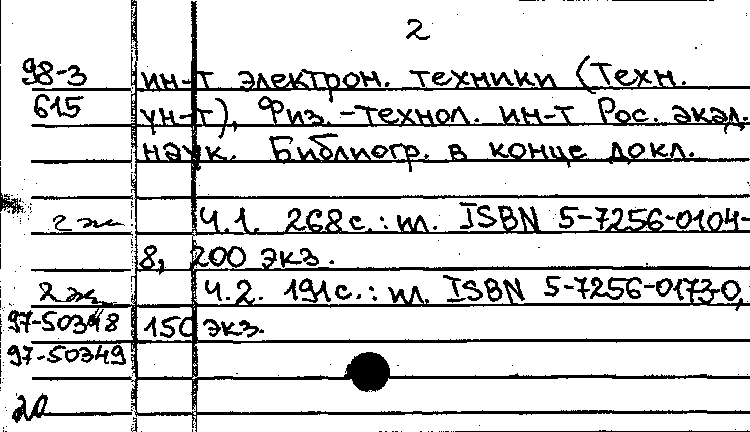 2
98-3 ин-т электрон. техники (Техн.
615 ун-т), Физ.-технол. ин-т Рос. акад.
наук. Библиогр. в конце докл.
2 эк Ч.1. 268 с. : ил. ISBN 5-7256-0104-
8, 200 экз.
2 эк Ч.2. 191 с. : ил. ISBN 5-7256-0173-0,
97-50348 150 экз.
97-50349
20